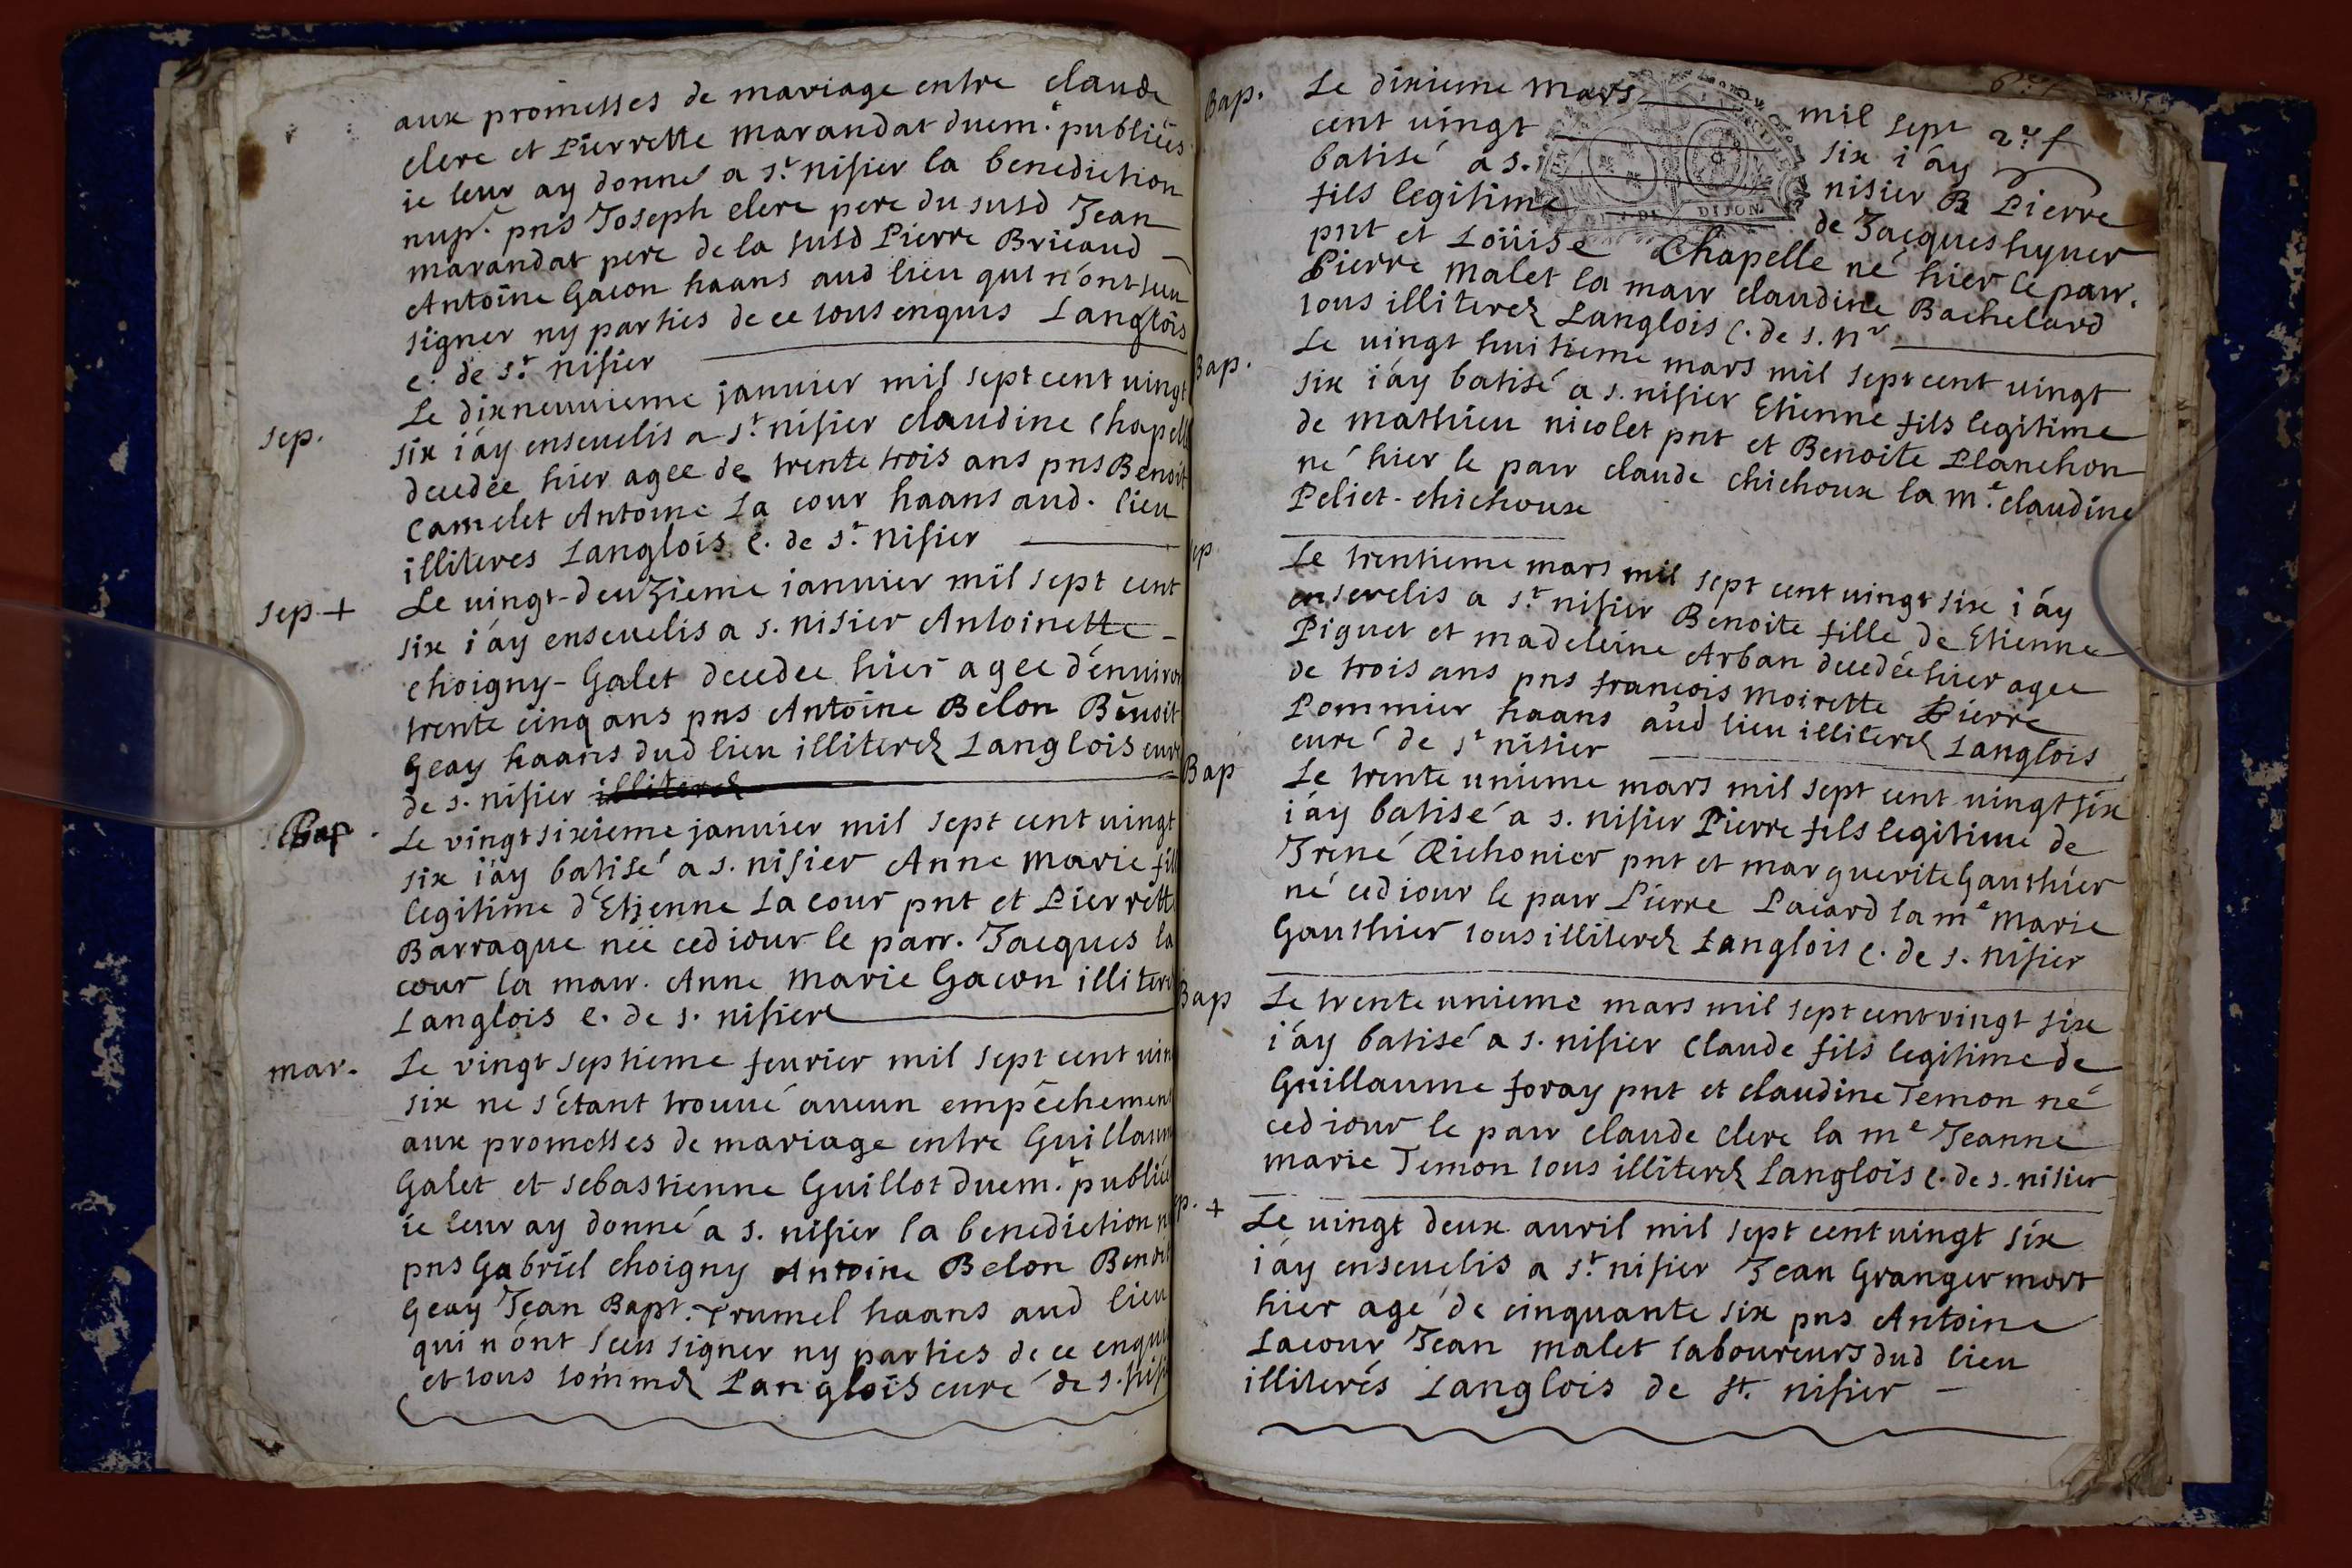 aux promesses de mariage entre claude
clerc et Pierrette marandat duem.t publiées
ie leur ay donné a s.t nisier la benediction
nup.e pns Joseph clerc pere du susd Jean
marandat pere de la susd Pierre Bricaud
Antoine Gacon haans aud lieu qui n'ont sceu
signer ny parties de ce tous enquis Langlois
c. de s.t nisier
sep.
Le dixneuvieme janvier mil sept cent vingt
six i'ay ensevelis a s.t nisier claudine Chapelle
decedée hier agee de trente trois ans pns Benoit
Camelet Antoine La cour haans aud. lieu
illiteres Langlois c. de s.t nisier
sep. +
Le vingt-deuzieme ianvier mil sept cent
six i'ay ensevelis a s. nisier Antoinette
choigny-Galet decedee hier agee d'environ
trente cinq ans pns Antoine Belon Benoit
Geay haans dud lieu illiterez Langlois curé
de s. nisier illiterez
Bap.
Le vingt sixieme janvier mil sept cent vingt
six i'ay batisé a s. nisier Anne marie fille
legitime d'Etienne La cour pnt et Pierrette
Barraque née ced iour le parr. Jacques la
cour la marr. Anne Marie Gacon illiterez
Langlois c. de s. nisier
mar.
Le vingt septieme fevrier mil sept cent vingt
six ne s'étant trouvé aucun empêchement
aux promesses de mariage entre Guillaume
Galet et sebastienne Guillot duem.t publiées
ie leur ay donné a s. nisier la benediction
pns Gabriel choigny Antoine Belon Benoit
Geay Jean Bapt. Trumel haans aud lieu
qui n'ont sceu signer ny parties de ce enquis
et tous sommez Langlois curé de s. nisier
2.e f
Bap.
Le dixieme mars mil sept
cent vingt six i'ay
batisé a s. nisier Pierre
fils legitime de Jacques hyver
pnt et Loüise Chapelle né hier le parr.
Pierre malet la marr claudine Bachelard
tous illiterez Langlois C. de s. nr
Bap.
Le vingt huitieme mars mil sept cent vingt
six i'ay batisé a s. nisier Etienne fils legitime
de mathieu nicolet pnt et Benoite Planchon
né hier le parr claude chichoux la m.e claudine
Peliet-chichoux
sep
Le trentieme mars mil sept cent vingt six i'ay
enserelis a s.t nisier Benoite fille de Etienne
Piguet et madeleine Arban decedée hier agee
de trois ans pns francois Moirette Pierre
Pommier haans aud lieu illiterez Langlois
curé de s.t nisier
Bap
Le trente unieme mars mil sept cent vingt six
i'ay batisé a s. nisier Pierre fils legitime de
Irené Richonier pnt et marguerite Gauthier
né ced iour le parr Pierre Pacard la m.e Marie
Gauthier tous illiterez Langlois c. de s. nisier
Bap
Le trente unieme mars mil sept cent vingt six
i'ay batisé a s. nisier Claude fils legitime de
Guillaume foray pnt et claudine Temon né
ced iour le parr claude clerc la m.e Jeanne
marie Temon tous illiterez Langlois c. de s. nisier
sep. +
Le vingt deux avril mil sept cent vingt six
i'ay ensevelis a s.t nisier Jean Granger mort
hier agé de cinquante six pns Antoine
Lacour Jean malet laboureurs dud lieu
illiterés Langlois de st. nisier
DE DIJON